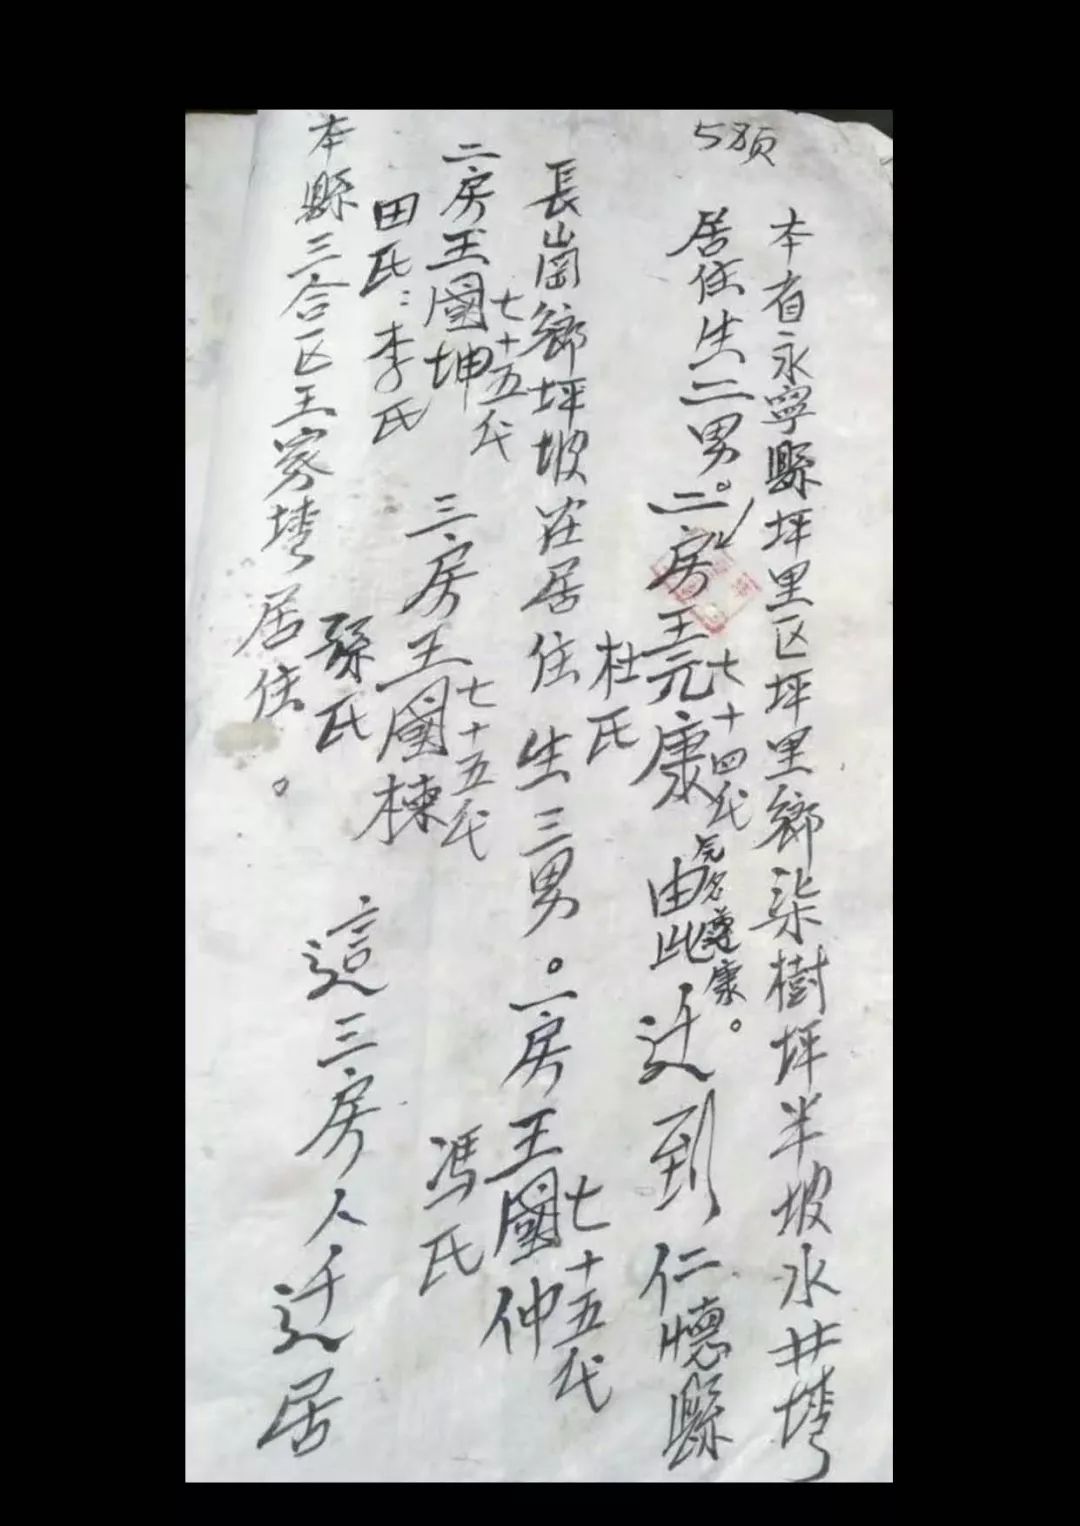 5页
本省永寧縣坪里区坪里鄉柒樹坪半坡水井塆
居住生二男。二房王元康
七十四代
元名尊康。
杜氏
由此迁到仁懷縣
長崗鄉坪坡在居住生三男。一房王國仲
七十五代
馮氏
二房王國坤
七十五代
田氏:李氏
三房王國棟
七十五代
孫氏
這三房人迁居
本縣三合区王家塆居住。